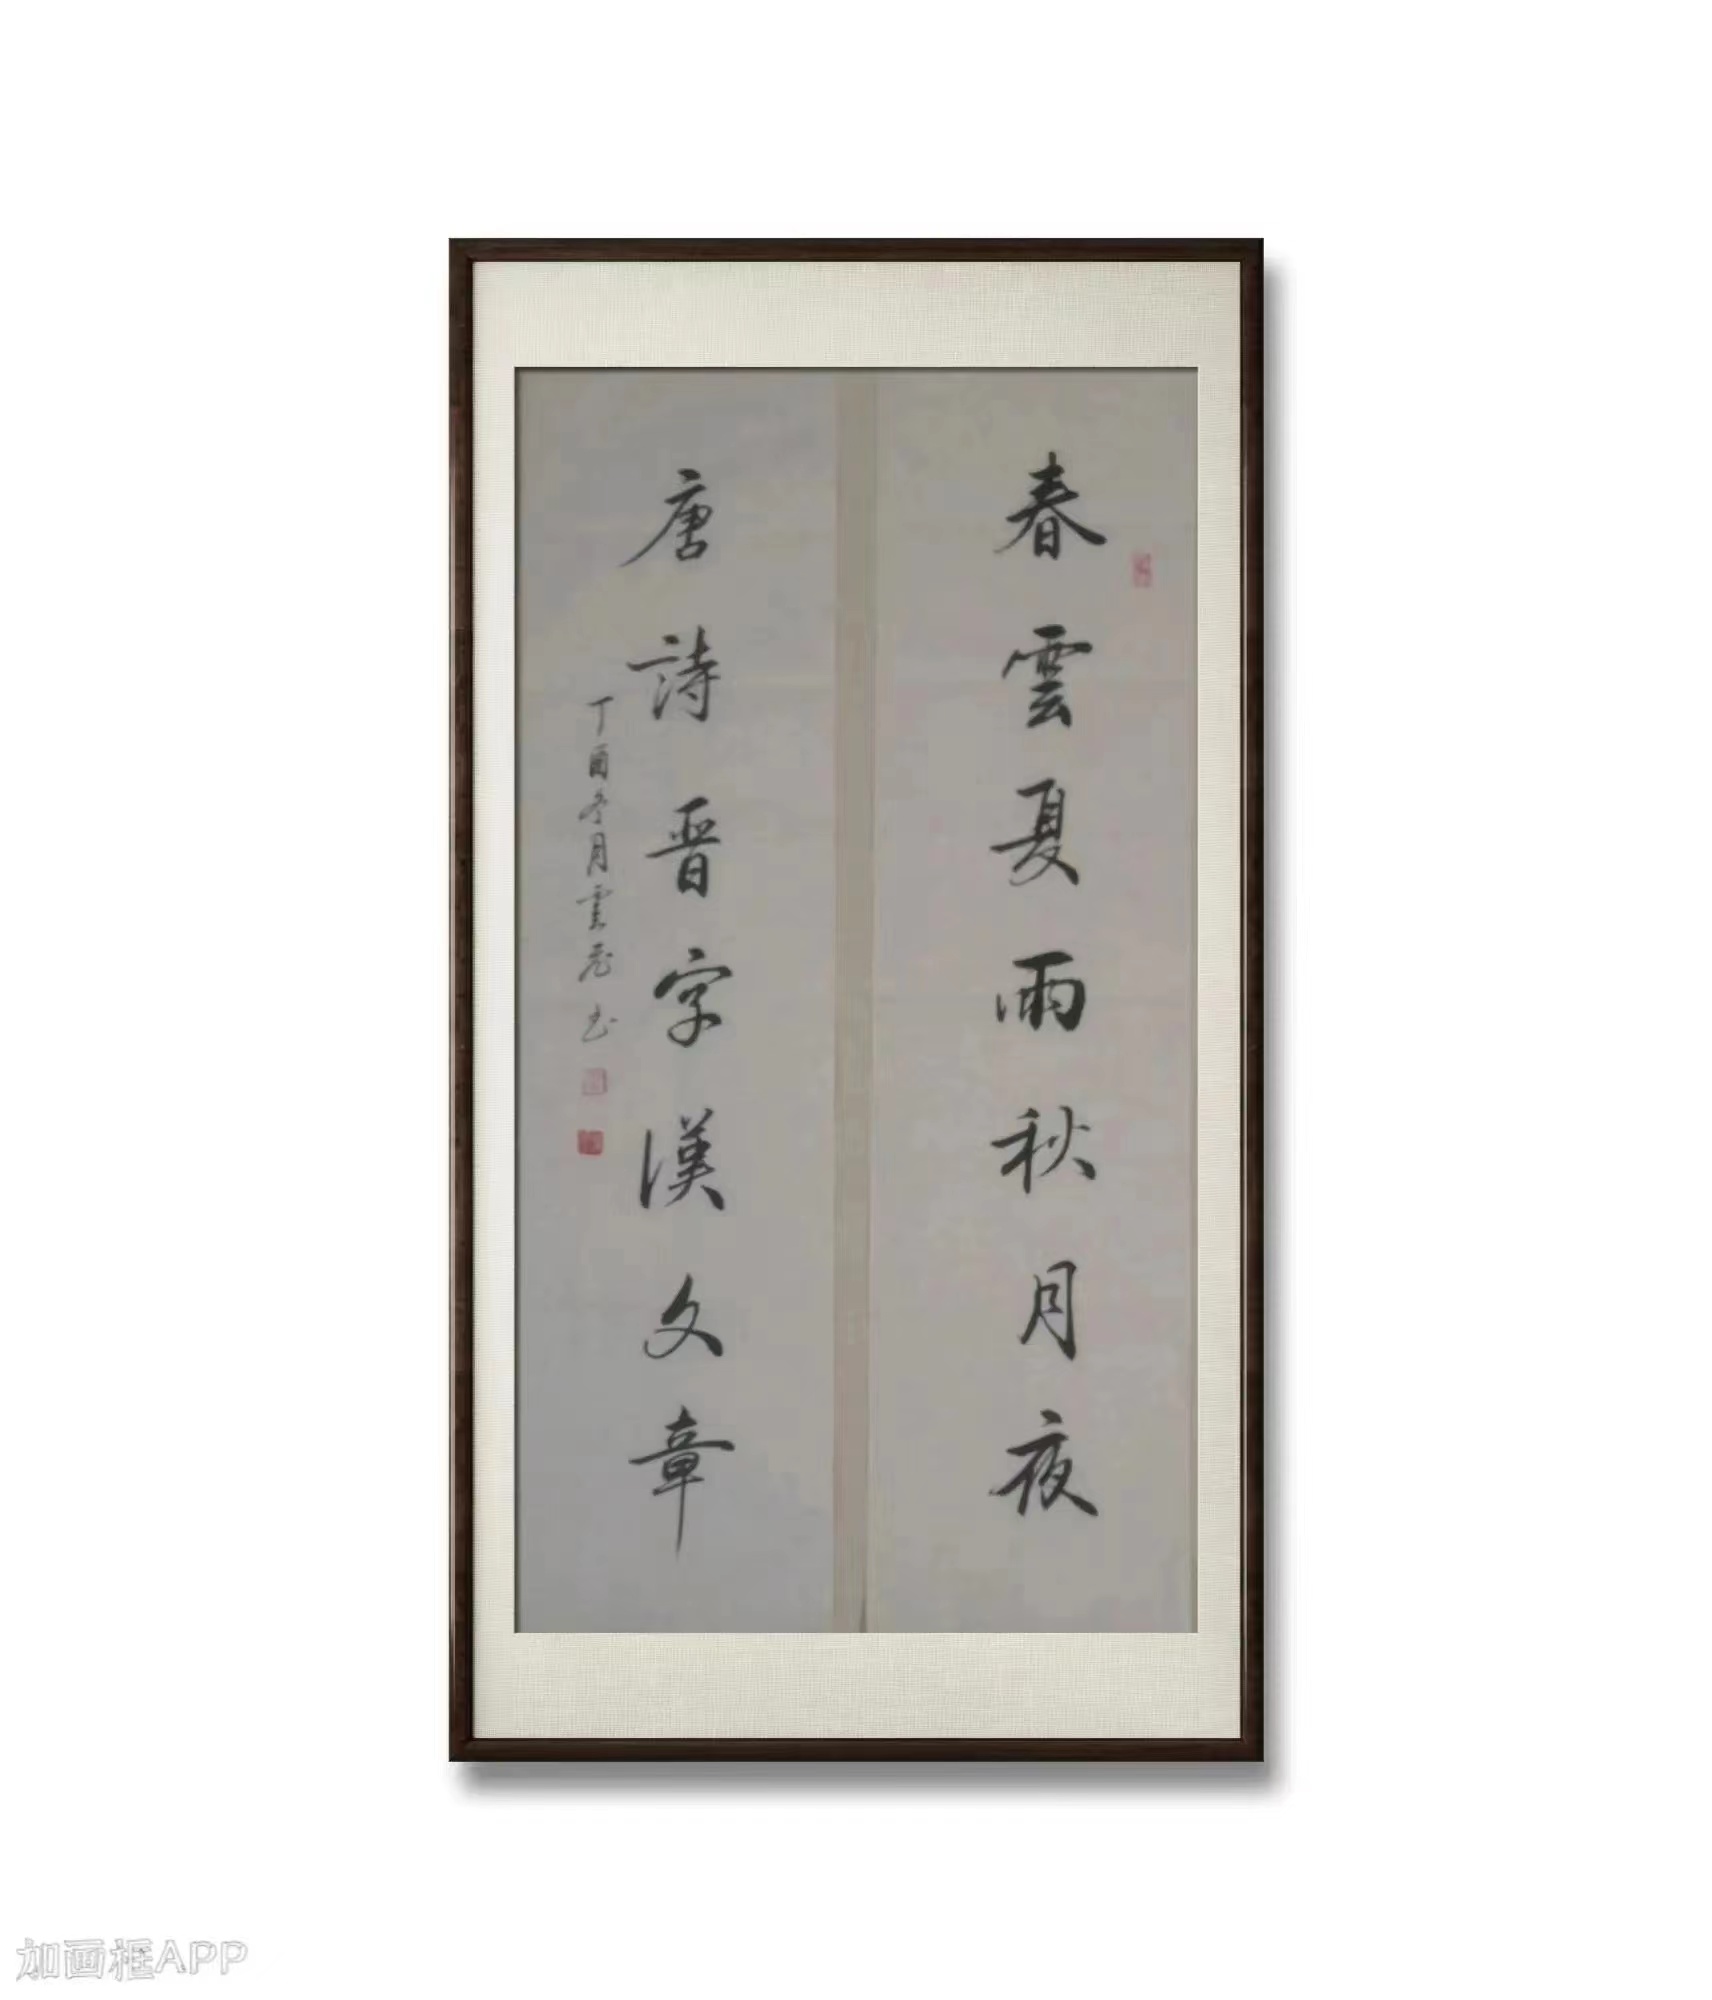 春雲夏雨秋月夜
唐詩晋字漢文章
丁酉冬月雲飛书
加画框APP